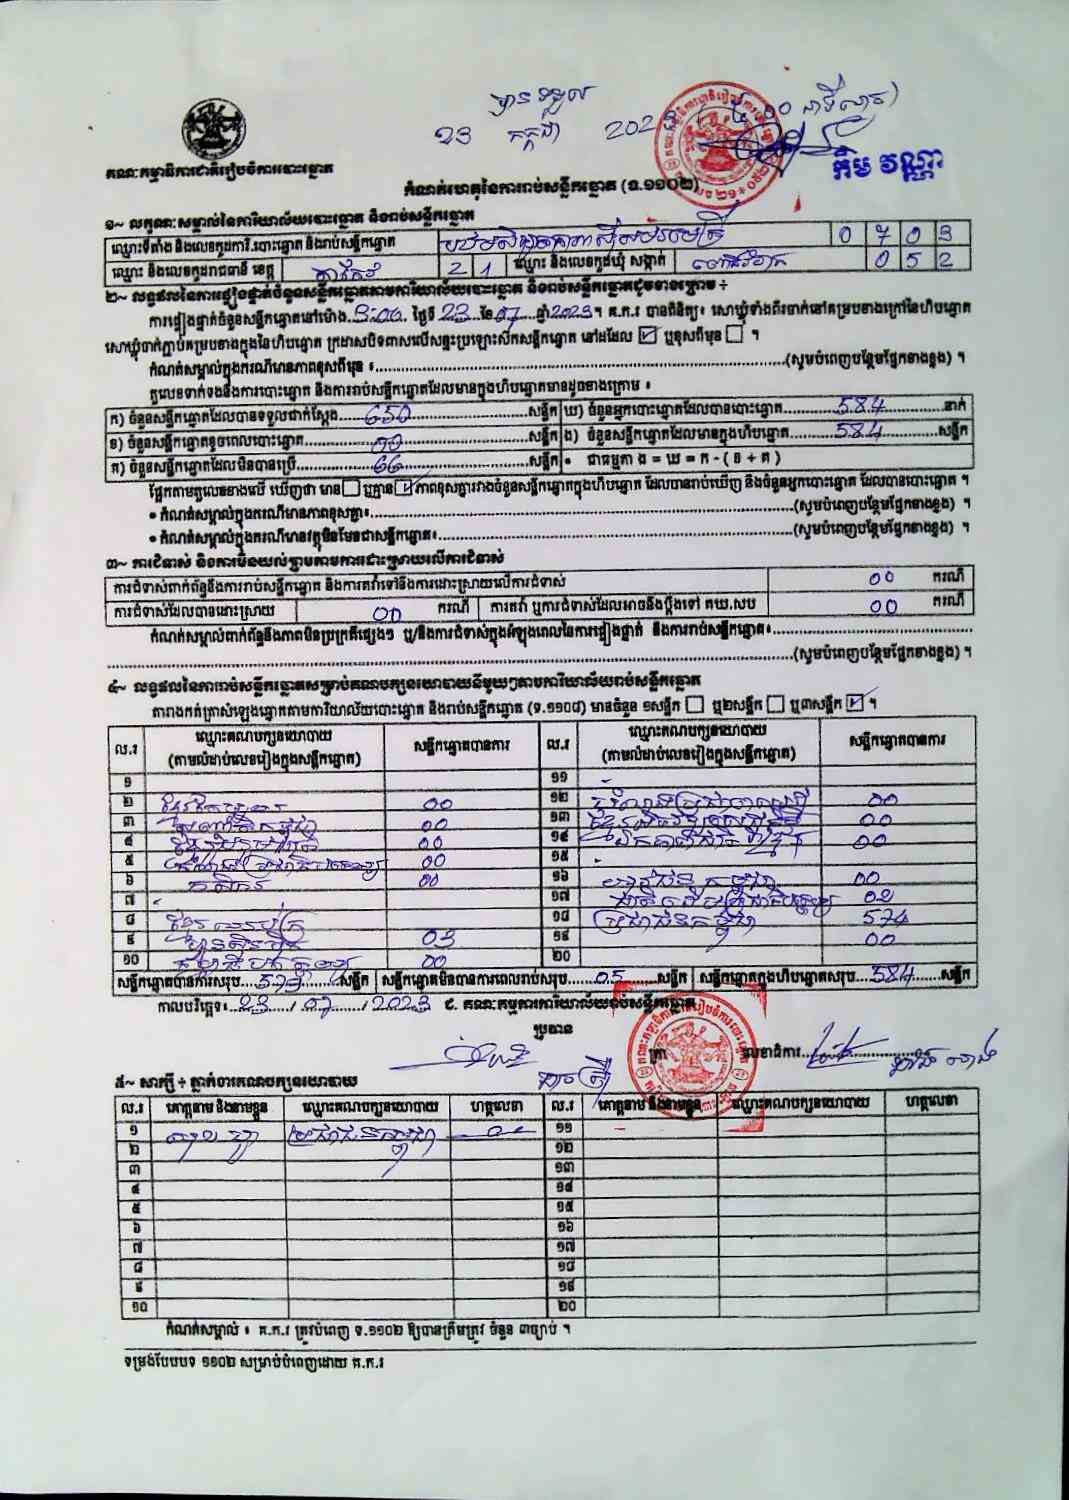 បានទទួល
១៣ កក្កដា 202
គណៈកម្មាធិការជាតិរៀបចំការបោះឆ្នោត
កឹម វណ្ណា
កំណត់ហេតុនៃការរាប់សន្លឹកឆ្នោត (ទ.១១០២)
១~ លក្ខណៈសម្គាល់នៃការិយាល័យបោះឆ្នោត និងរាប់សន្លឹកឆ្នោត
ឈ្មោះទីតាំង និងលេខកូដការិ.បោះឆ្នោត និងរាប់សន្លឹកឆ្នោត 0 7 0 3
ឈ្មោះ និងលេខកូដរាជធានី ខេត្ត តាកែវ 2 1 ឈ្មោះ និងលេខកូដឃុំ សង្កាត់ 0 5 2
២~ លទ្ធផលនៃការផ្ទៀងផ្ទាត់ចំនួនសន្លឹកឆ្នោតតាមការិយាល័យបោះឆ្នោត និងរាប់សន្លឹកឆ្នោតដូចខាងក្រោម ÷
ការផ្ទៀងផ្ទាត់ចំនួនសន្លឹកឆ្នោតនៅម៉ោង 3:00 ថ្ងៃទី 23 ខែ 07 ឆ្នាំ 2023។ គ.ក.រ បានពិនិត្យ៖ សោឃ្លុំទាំងពីរចាក់នៅគម្របខាងក្រៅនៃហិបឆ្នោត
សោឃ្លុំចាក់ភ្ជាប់គម្របខាងក្នុងនៃហិបឆ្នោត ក្រដាសបិទពាសលើសន្ទះប្រឡោះស៊ីកសន្លឹកឆ្នោត នៅដដែល ☑ ឬខុសពីមុន ☐ ។
កំណត់សម្គាល់ក្នុងករណីមានភាពខុសពីមុន ៖ (សូមបំពេញបន្ថែមផ្នែកខាងខ្នង) ។
តួលេខទាក់ទងនឹងការបោះឆ្នោត និងការរាប់សន្លឹកឆ្នោតដែលមានក្នុងហិបឆ្នោតមានដូចខាងក្រោម ៖
ក) ចំនួនសន្លឹកឆ្នោតដែលបានទទួលជាក់ស្តែង 650 សន្លឹក ឃ) ចំនួនអ្នកបោះឆ្នោតដែលបានបោះឆ្នោត 584 នាក់
ខ) ចំនួនសន្លឹកឆ្នោតខូចពេលបោះឆ្នោត 00 សន្លឹក ង) ចំនួនសន្លឹកឆ្នោតដែលមានក្នុងហិបឆ្នោត 584 សន្លឹក
គ) ចំនួនសន្លឹកឆ្នោតដែលមិនបានប្រើ 66 សន្លឹក • ជាធម្មតា ង = ឃ = ក - ( ខ + គ )
ផ្អែកតាមតួលេខខាងលើ ឃើញថា មាន ☐ ឬគ្មាន ☑ ភាពខុសគ្នារវាងចំនួនសន្លឹកឆ្នោតក្នុងហិបឆ្នោត ដែលបានរាប់ឃើញ និងចំនួនអ្នកបោះឆ្នោត ដែលបានបោះឆ្នោត ។
• កំណត់សម្គាល់ក្នុងករណីមានភាពខុសគ្នា៖ (សូមបំពេញបន្ថែមផ្នែកខាងខ្នង) ។
• កំណត់សម្គាល់ក្នុងករណីមានវត្ថុមិនមែនជាសន្លឹកឆ្នោត៖ (សូមបំពេញបន្ថែមផ្នែកខាងខ្នង) ។
៣~ ការជំទាស់ និងការមិនយល់ព្រមតាមការដោះស្រាយលើការជំទាស់
ការជំទាស់ពាក់ព័ន្ធនឹងការរាប់សន្លឹកឆ្នោត និងការតវ៉ាទៅនឹងការដោះស្រាយលើការជំទាស់ 00 ករណី
ការជំទាស់ដែលបានដោះស្រាយ 00 ករណី ការតវ៉ា ឬការជំទាស់ដែលអាចនឹងប្តឹងទៅ គឃ.សប 00 ករណី
កំណត់សម្គាល់ពាក់ព័ន្ធនឹងភាពមិនប្រក្រតីផ្សេងៗ ឬ/និងការជំទាស់ក្នុងអំឡុងពេលនៃការផ្ទៀងផ្ទាត់ និងការរាប់សន្លឹកឆ្នោត៖
(សូមបំពេញបន្ថែមផ្នែកខាងខ្នង) ។
៤~ លទ្ធផលនៃការរាប់សន្លឹកឆ្នោតសម្រាប់គណបក្សនយោបាយនីមួយៗតាមការិយាល័យរាប់សន្លឹកឆ្នោត
តារាងកត់ត្រាសំឡេងឆ្នោតតាមការិយាល័យបោះឆ្នោត និងរាប់សន្លឹកឆ្នោត (ទ.១១០៨) មានចំនួន ១សន្លឹក ☐ ឬ២សន្លឹក ☐ ឬ៣សន្លឹក ☑ ។
ល.រ ឈ្មោះគណបក្សនយោបាយ (តាមលំដាប់លេខរៀងក្នុងសន្លឹកឆ្នោត) សន្លឹកឆ្នោតបានការ ល.រ ឈ្មោះគណបក្សនយោបាយ (តាមលំដាប់លេខរៀងក្នុងសន្លឹកឆ្នោត) សន្លឹកឆ្នោតបានការ
១ ១១
២ 00 ១២ 00
៣ 00 ១៣ 00
៤ 00 ១៤ 00
៥ 00 ១៥
៦ កសិករ 00 ១៦ កម្ពុជា 00
៧ ១៧ 02
៨ ខ្មែរ ១៨ ប្រជាជនកម្ពុជា 574
៩ 03 ១៩ 00
១០ 00 ២០
សន្លឹកឆ្នោតបានការសរុប 579 សន្លឹក សន្លឹកឆ្នោតមិនបានការពេលរាប់សរុប 05 សន្លឹក សន្លឹកឆ្នោតក្នុងហិបឆ្នោតសរុប 584 សន្លឹក
កាលបរិច្ឆេទ៖ 23 / 07 / 2023 ជ. គណៈកម្មការការិយាល័យរាប់សន្លឹកឆ្នោត
ប្រធាន ត្រា លេខាធិការ
៥~ សាក្សី ÷ ភ្នាក់ងារគណបក្សនយោបាយ
ល.រ គោត្តនាម និងនាមខ្លួន ឈ្មោះគណបក្សនយោបាយ ហត្ថលេខា ល.រ គោត្តនាម និងនាមខ្លួន ឈ្មោះគណបក្សនយោបាយ ហត្ថលេខា
១ ប្រជាជនកម្ពុជា ១១
២ ១២
៣ ១៣
៤ ១៤
៥ ១៥
៦ ១៦
៧ ១៧
៨ ១៨
៩ ១៩
១០ ២០
កំណត់សម្គាល់ ៖ គ.ក.រ ត្រូវបំពេញ ទ.១១០២ ឱ្យបានត្រឹមត្រូវ ចំនួន ៣ច្បាប់ ។
ទម្រង់បែបបទ ១១០២ សម្រាប់បំពេញដោយ គ.ក.រ